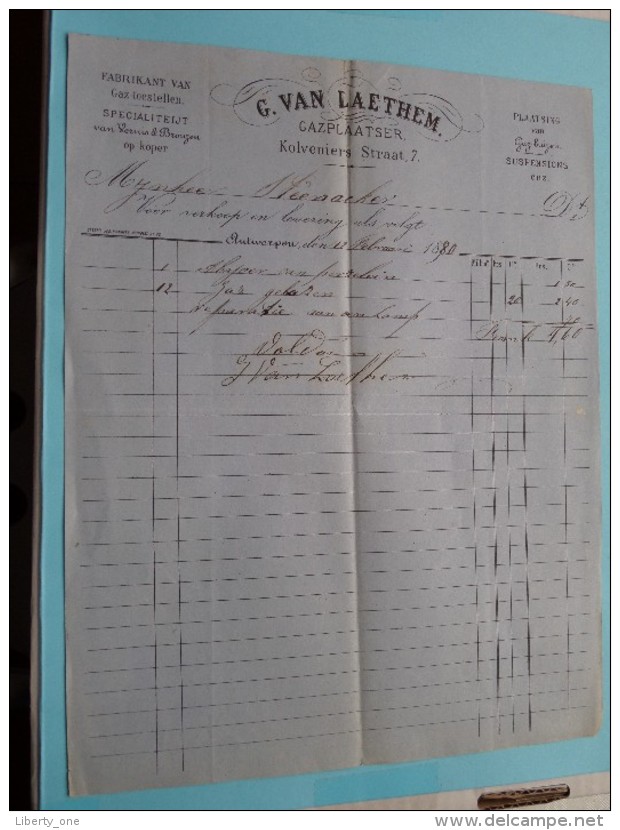 FABRIKANT VAN
Gaz-toestellen.
SPECIALITEIJT
van Vernis & Bronzen
op koper
G. VAN LAETHEM.
GAZPLAATSER.
Kolveniers Straat, 7.
PLAATSING
van
Gaz Buizen
SUSPENSIONS
enz.
Mynheer
Dt
Voor verkoop en levering als volgt
Antwerpen, den 12 Februari 1880
1 van porcelein 1 50
12 gelazen 20 2 40
reparatie van een lamp 70
4,60
Voldaan
G Van Laethem
Liberty_one
www.delcampe.net